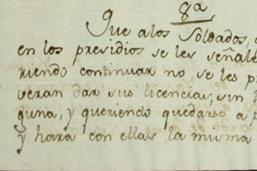 8ª
Que alos Soldados,
en los presidios se les señale
riendo continuar no se les p
veran dar sus licencia, sin
guna, y queriendo quedarse a p
y hara con ellas la misma